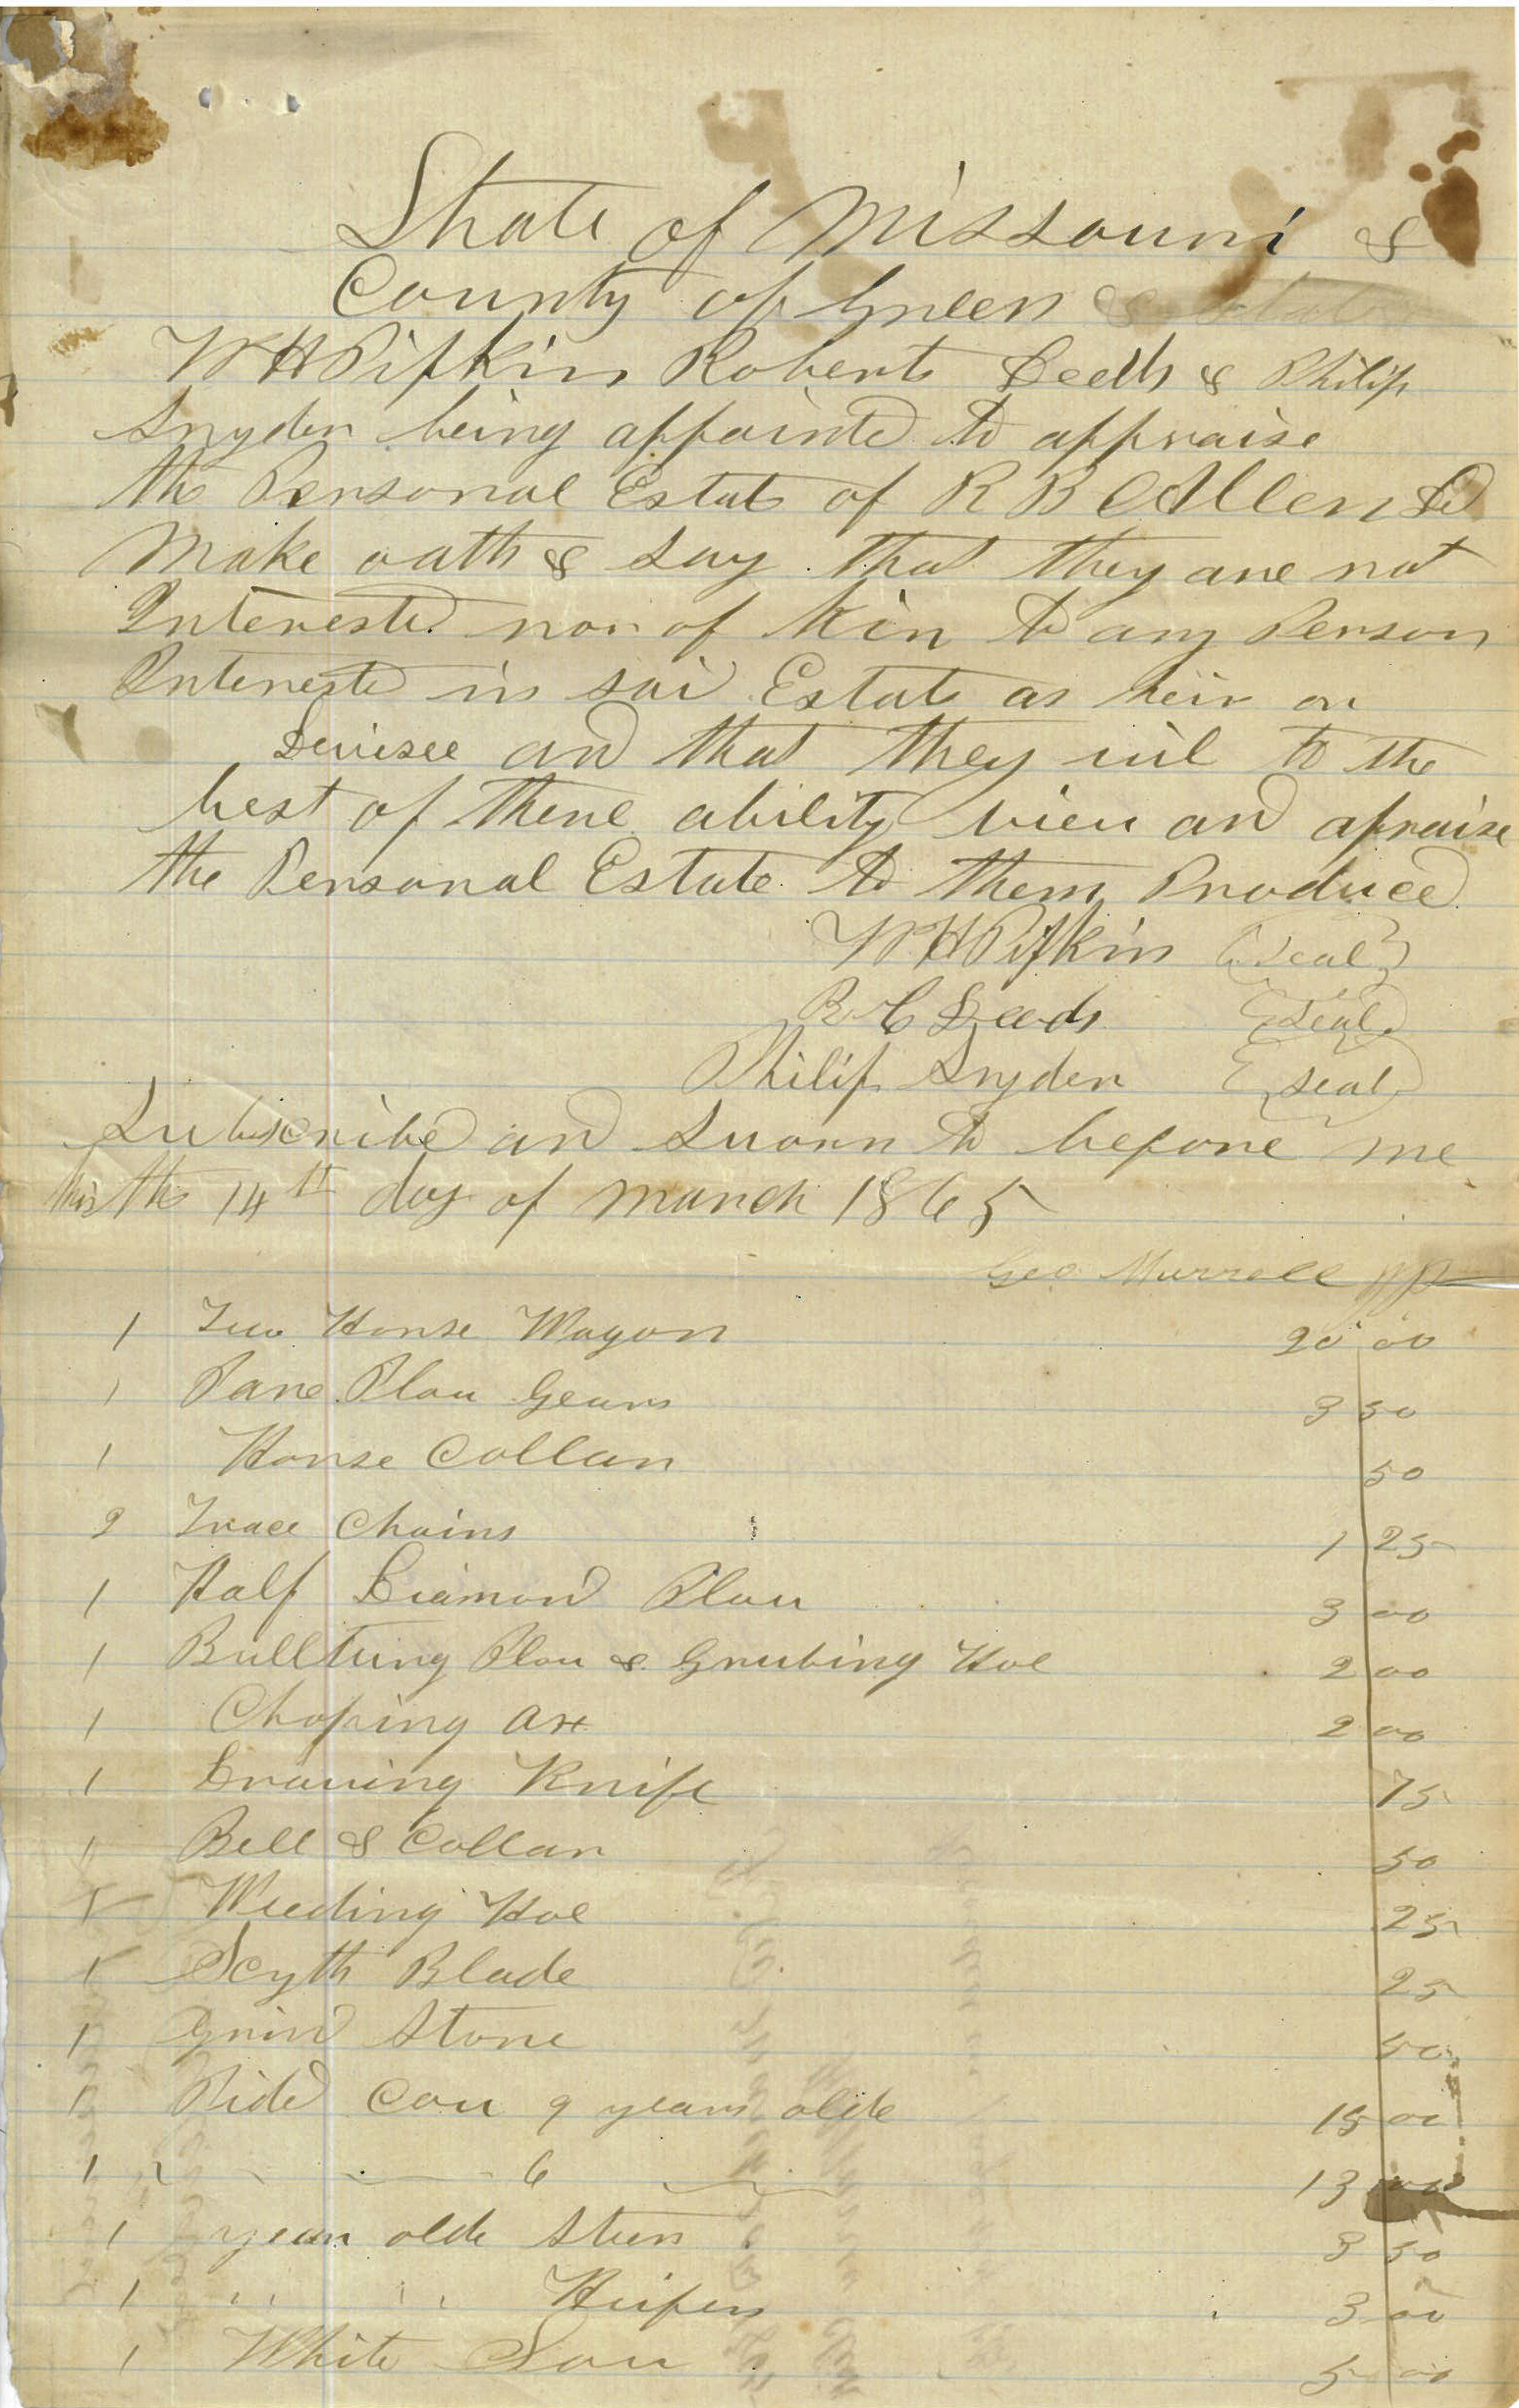 State of Missouri &
County of Green &
W H Pipkin Robert Deeds & Philip
Snyder being appointed to appraise
the Personal Estate of R B Allen Dd
Make oath & say that they are not
Interested nor of kin to any Person
Interested in said Estate as heir or
Devisee and that they wil to the
best of there ability view and apraise
the Personal Estate to them Produced
W H Pipkin (Seal)
R C Deeds (Seal)
Philip Snyder (Seal)
Subscribed and Sworn to before me
this the 14th day of march 1865
Geo Murrell JP
1 Two Horse Wagon 20 00
1 Pare Plow Gears 3 50
1 Horse Collar 50
2 Trace Chains 1 25
1 Half Diamond Plow 3 00
1 Bulltung Plow & Grubing Hoe 2 00
1 Choping ax 2 00
1 Drawing Knife 75
1 Bell & Collar 50
1 Weeding Hoe 25
1 Scyth Blade 25
1 Grind Stone 50
1 Pided Cow 9 years olde 15 00
1 " 6 13 00
1 year olde Steer 3 50
1 " " Heifer 3 00
1 White Sow 5 00